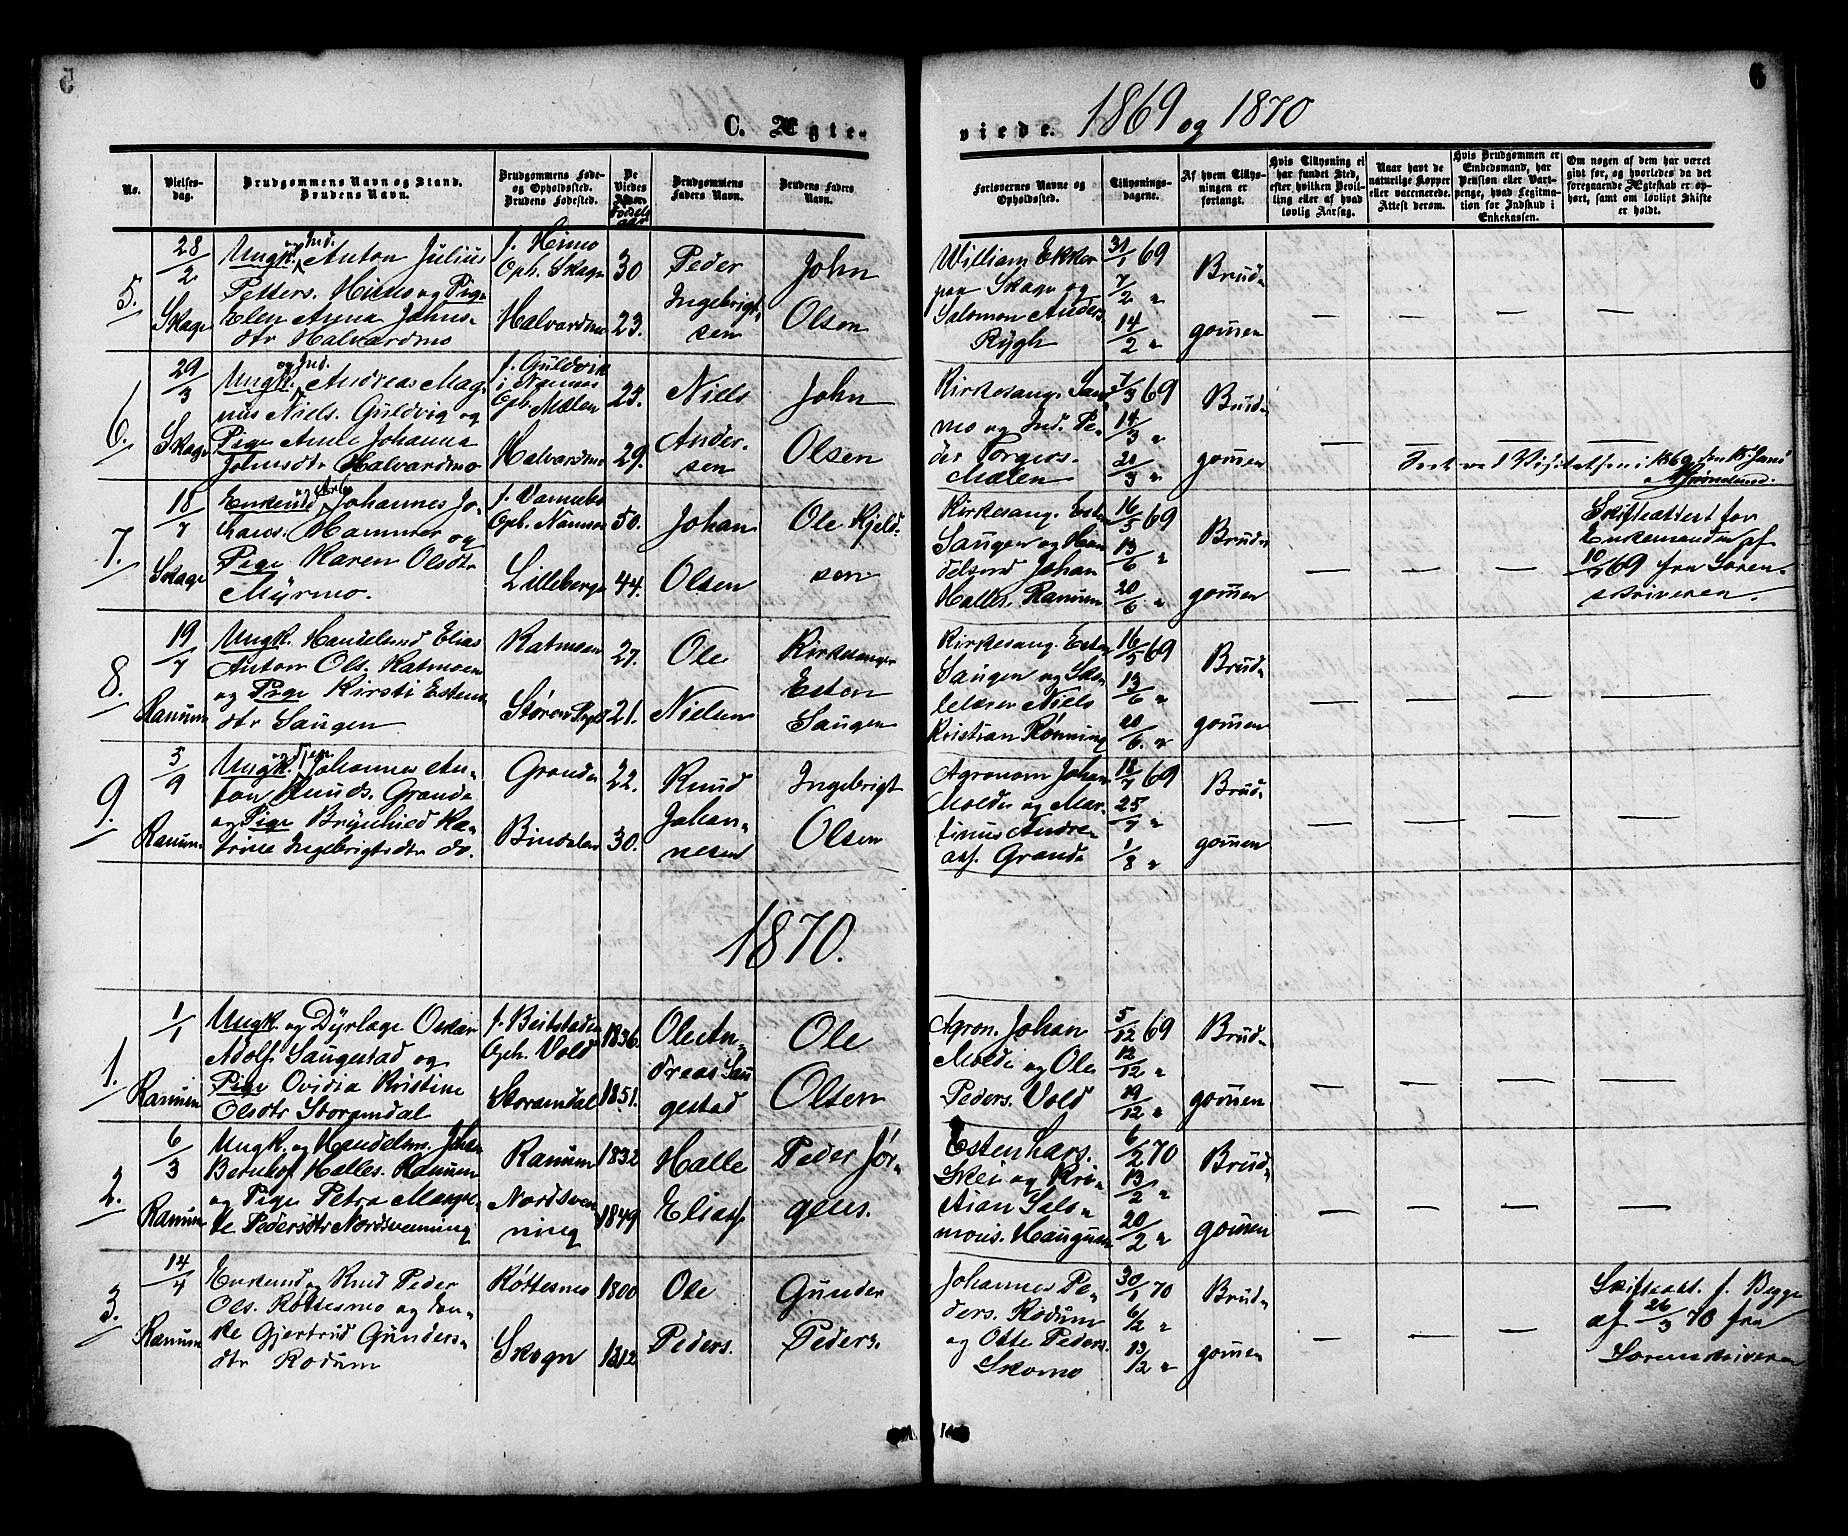 5
6
C. Ægte-
viede.
1869 og 1870
No.
Vielses-
dag.
Brudgommens Navn og Stand.
Brudens Navn.
Brudgommens Føde-
og Opholdssted.
Brudens Fødested.
De
Viedes
Alder
Fødsels
aar
Brudgommens
Faders Navn.
Brudens Faders
Navn.
Forlovernes Navne og
Opholdssted.
Tillysnings-
dagene.
Af hvem Tillys-
ningen er
forlangt.
Hvis Tillysning ei
har fundet Sted,
efter hvilken Bevil-
ling eller af hvad
lovlig Aarsag.
Naar havt de
naturlige Kopper
eller vaccinerede.
Attest derom.
Hvis Brudgommen er
Enkedsmand, har
Pension eller Vart-
penge, hvad Legitima-
tion for Indskud i
Enkekassen.
Om nogen af dem har været
gift før, og hvorledes da det
foregaaende Ægteskab er op-
hørt, samt om lovligt Skifte
er holdt.
5.
28/2
Skage
Ungk. og Ind. Anton Julius
Petters. Himo og Pige
Elen Anna Johns-
dtr Halvardmo
f. Himo
Oph. Skage
Halvardmo
30
23.
Peder
Ingebrigt-
sen
John
Olsen
William Ekker
paa Skage og
Salomon Anders.
Rygh
31/1 69
7/2 "
14/2 "
Brud-
gommen
6.
29/3
Skage
Ungk. og Ind. Andreas Mag-
nus Niels. Guldvig og
Pige Anne Johanna
Johnsdtr Halvardmo
f. Guldvik
i Namnos
Oph. Mælen
Halvardmo
25.
29.
Niels
Ander-
sen
John
Olsen
Kirkesang. San-
mo og Ind. Pe-
der Torgers.
Mælen
7/3 69
14/3 "
21/3 "
Brud-
gommen
ved Visitatsen i 1869 den 15 Juni
7.
18/7
Skage
Enkemd og Arb. Johannes Jo-
hans. Hammer og
Pige Karen Olsdtr
Myrmo.
f. Vannebo
Oph. Namsos
Lilleberge
50.
44.
Johan
Olsen
Ole Kjeld-
sen
Kirkesang. Esten
Saugen og Han-
delsmd Johan
Halles. Ranum
16/5 69
13/6 "
20/6 "
Brud-
gommen
Skifteattest for
Enkemanden af
10/7 69 fra Soren-
skriveren.
8.
19/7
Ranum
Ungk. Handelsmd Elias
Anton Ols. Katmoen
og Pige Kirsti Estens-
dtr Saugen
Katmoen
Støren Prgld
27.
21.
Ole
Nielsen
Kirkesanger
Esten
Saugen
Kirkesang. Esten
Saugen og Sko-
lelærer Niels
Kristian Rønning
16/5 69
13/6 "
20/6. "
Brud-
gommen
9.
5/9
Ranum
Ungk. og Johannes An-
ton Knuds. Grande
og Pige Brynhied Ka-
trine Ingebrigtsdtr do.
Grande
Bindalen
22.
30.
Knud
Johan-
nesen
Ingebrigt
Olsen
Agronom Johan
Molde og Mar-
tinus Andre-
ass. Grande
18/7 69
25/7 "
1/8 "
Brud-
gommen
1870.
1.
1/1
Ranum
Ungk. og Dyrlæge Oskar
Adolf Saugestad og
Pige Ovidia Kristine
Olsdtr Storamdal
f. Beitstaden
Oph. Vold
Storamdal
1836.
1851.
Ole An-
dreas Sau
gestad
Ole
Olsen
Agron. Johan
Molde og Ole
Peders. Vold
5/12 69
12/12 "
19/12 "
Brud-
gommen
2.
6/3
Ranum
Ungk. og Handelsm. Johan
Bernhof Halles. Ranum
og Pige Petra Margre-
te Pedersdtr Nordsvenning
Ranum
Nordsven
ning
1832
1849
Halle
Eliass
Peder Jør-
gens.
Esten Lars.
Skei og Kri-
stian Salo-
mons. Haugum
6/2 70
13/2 "
20/2 "
Brud-
gommen
3.
14/4
Ranum
Enkemd og Knud Peder
Ols. Røttesmo og En-
ke Gjertrud Gunders-
dtr Rodum
Røttesmo
Skogn
1800
1812
Ole
Peders.
Gunder
Peders.
Johannes Pe-
ders. Rodum
og Otte Peders.
Skomo
30/1 70
6/2 "
13/2 "
Brud-
gommen
Skifteatt. f. Begge
af 26/3 70 fra
Sorenskriveren